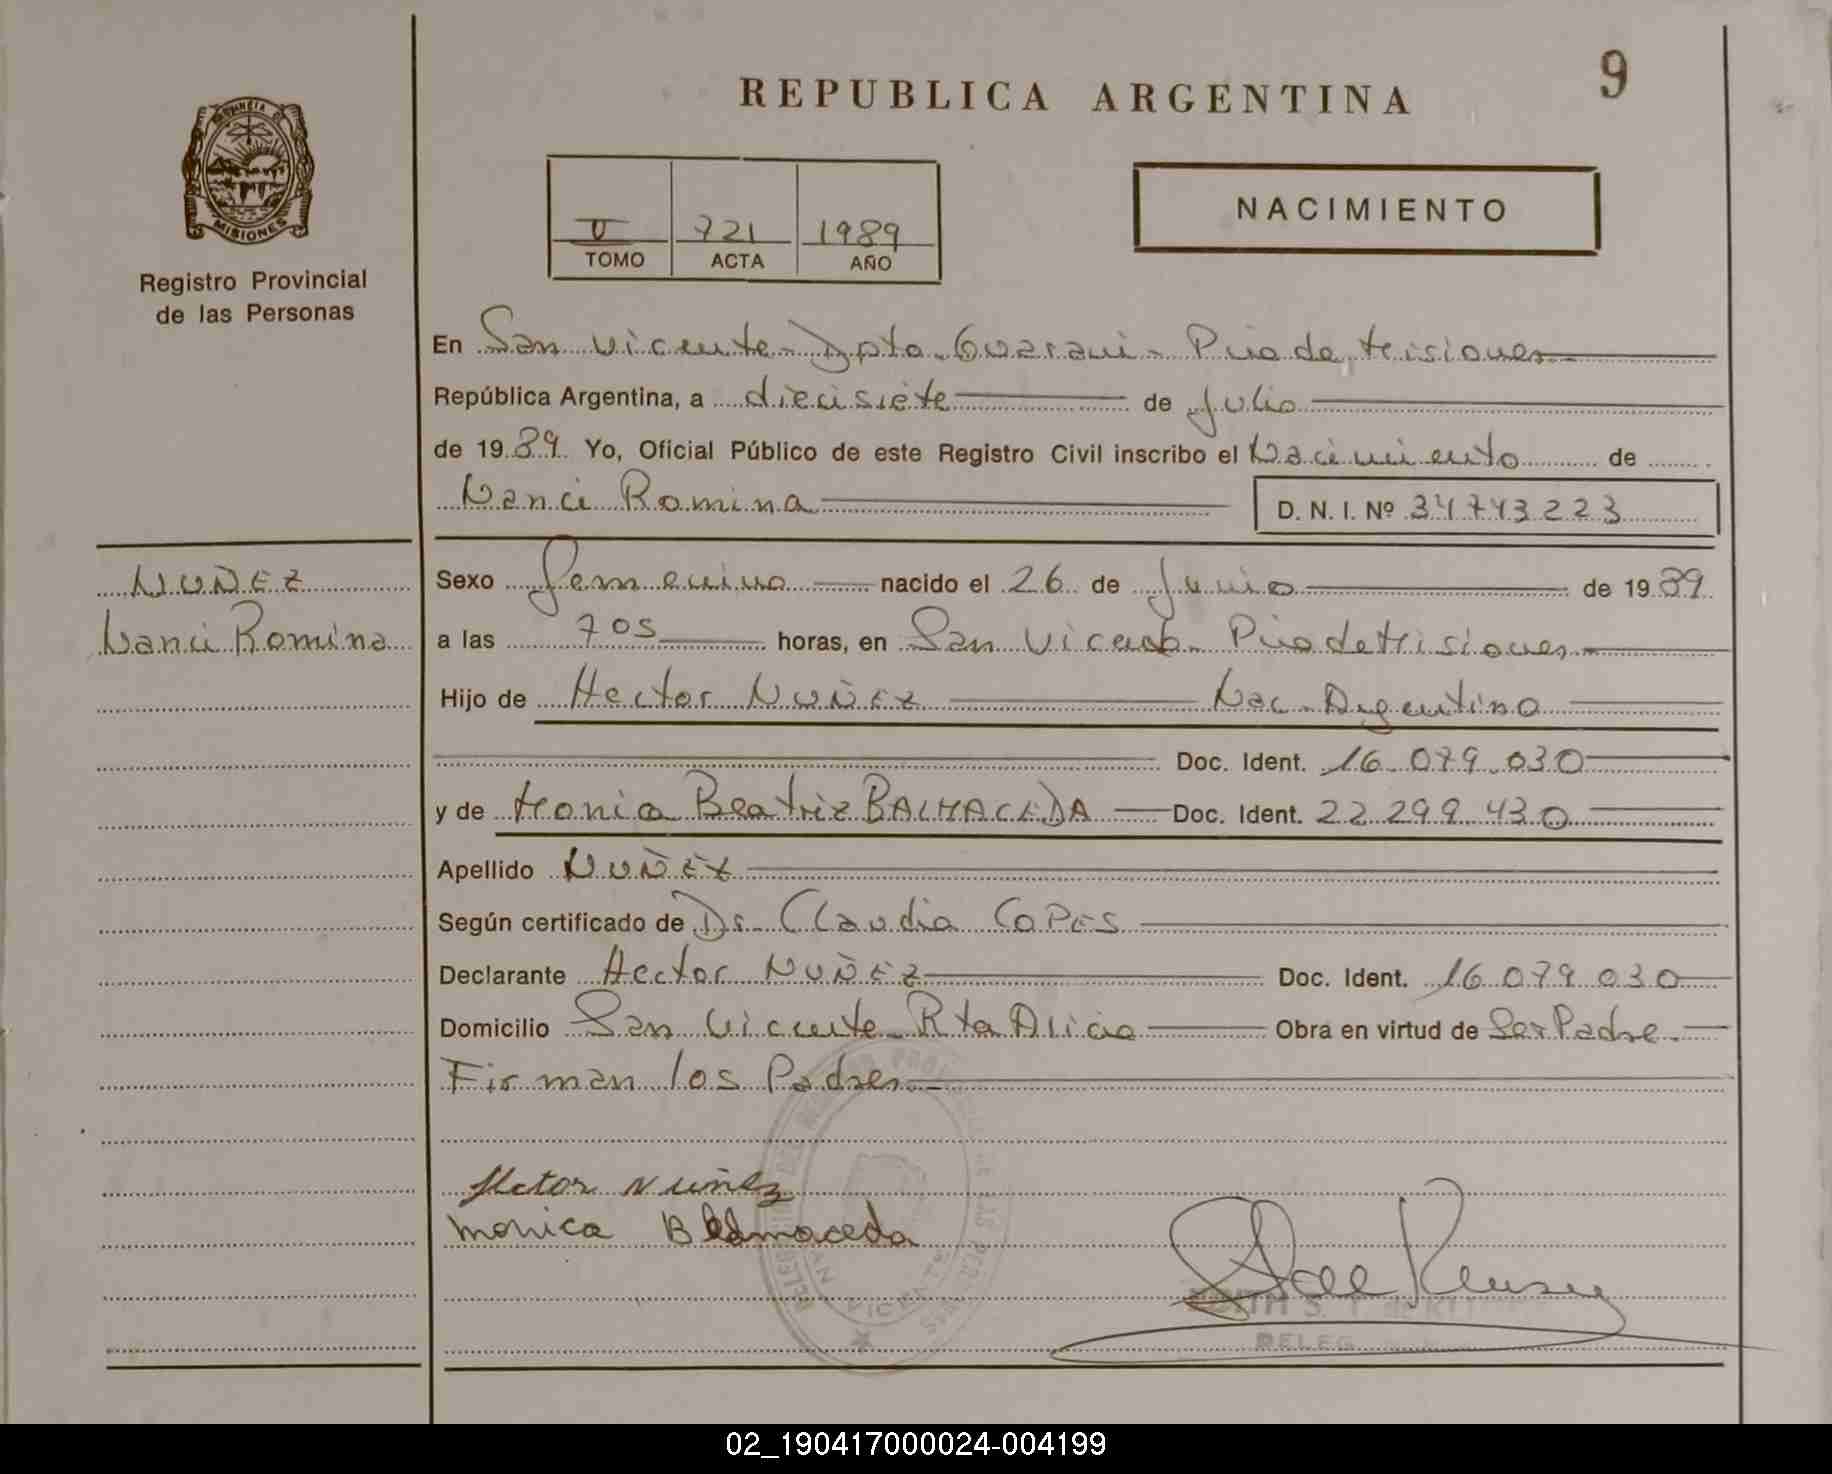 9
REPUBLICA ARGENTINA
PROVINCIA DE
MISIONES
Registro Provincial
de las Personas
V 721 1989
TOMO ACTA AÑO
NACIMIENTO
En San Vicente - Dpto. Guarani - Pcia de Misiones
República Argentina, a diecisiete de Julio
de 1989 Yo, Oficial Público de este Registro Civil inscribo el Nacimiento de
Nanci Romina D. N. I. Nº 34743223
NUÑEZ
Nanci Romina
Sexo femenino nacido el 26 de Junio de 1989
a las 705 horas, en San Vicente - Pcia de Misiones
Hijo de Hector NUÑEZ Nac. Argentino
Doc. Ident. 16.079.030
y de Monica Beatriz BALMACEDA Doc. Ident. 22.299.430
Apellido NUÑEZ
Según certificado de Dr. Claudia COPES
Declarante Hector NUÑEZ Doc. Ident. 16.079.030
Domicilio San Vicente - Rta Alicia Obra en virtud de Ser Padre
Firman los Padres
Hector Nuñez
Monica Balmaceda
SAN VICENTE
DELEG
02_190417000024-004199